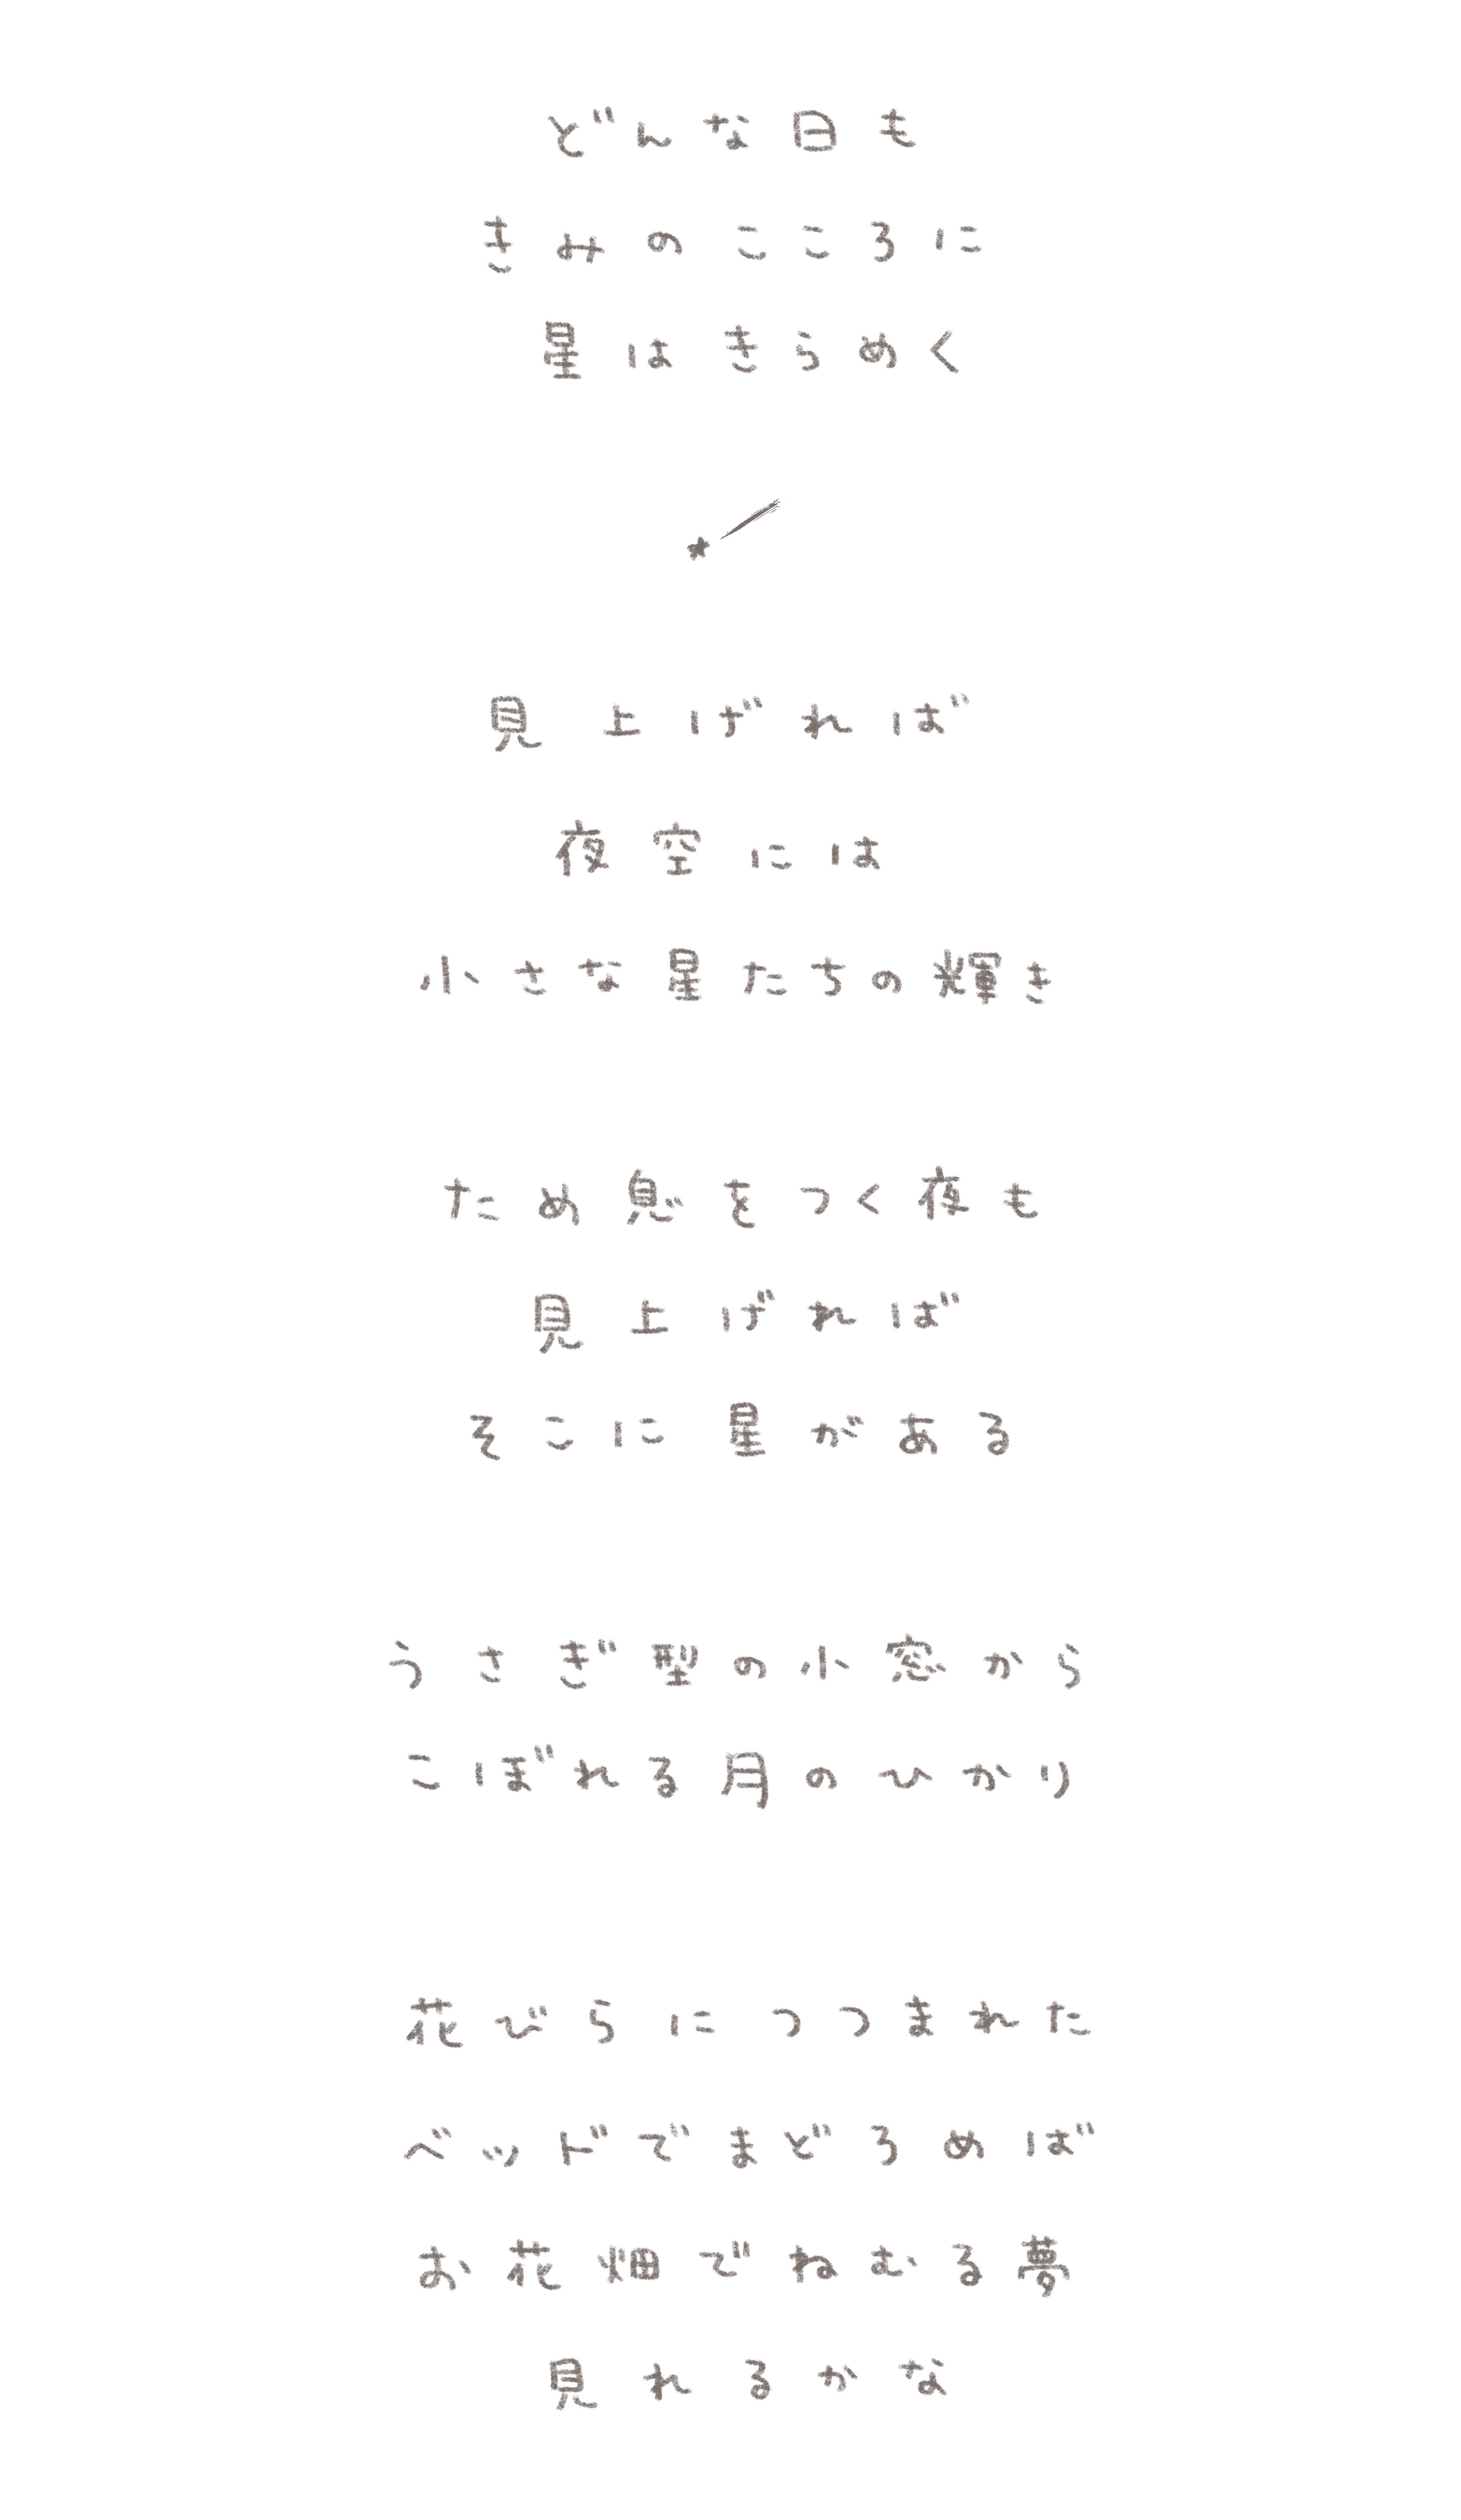 どんな日も
きみのこころに
星はきらめく
見上げれば
夜空には
小さな星たちの輝き
ため息をつく夜も
見上げれば
そこに星がある
うさぎ型の小窓から
こぼれる月のひかり
花びらにつつまれた
ベッドでまどろめば
お花畑でねむる夢
見れるかな